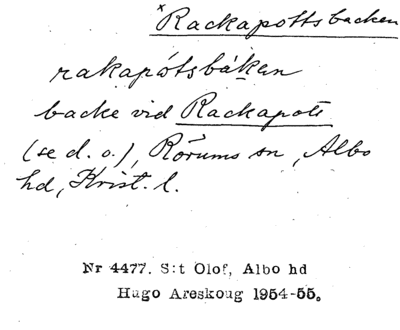 *Rackapottsbacken
rakapótsbákan
backe vid Rackapott
(se d. o.), Rörums sn, Albo
hd, Krist. l.
Nr 4477. S:t Olof, Albo hd
Hugo Areskoug 1954-55.